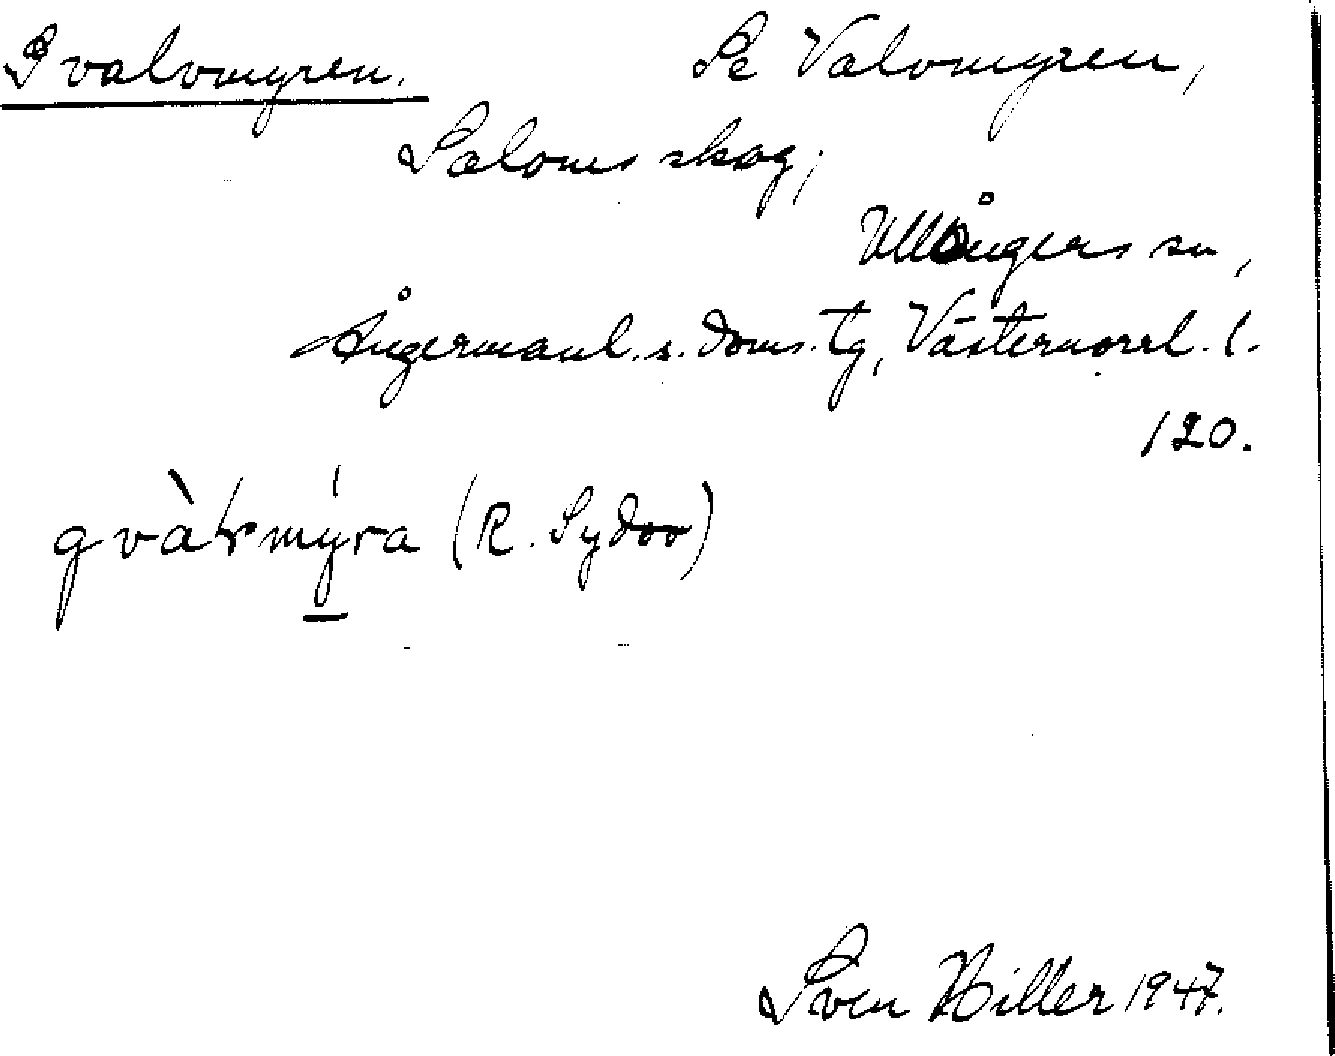 Gvalvmyren. Se Valvmyren,
Saloms skog,
Ullångers sn,
Ångermanl. s. doms. tg, Västernorrl. l.
120.
(R. Sydow)
Sven Hiller 1947.